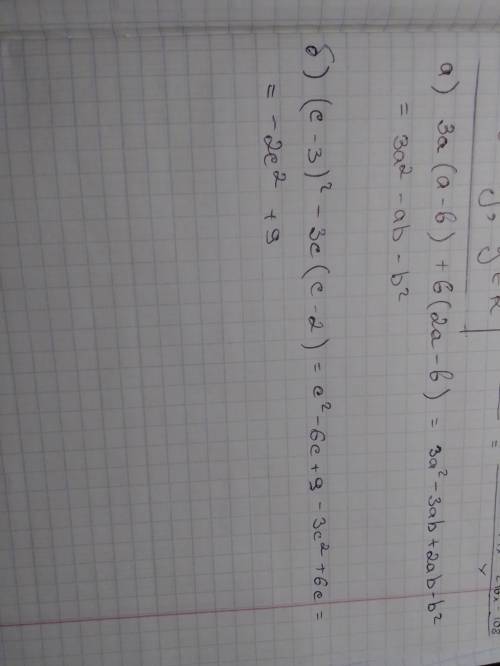 а) 3a(a-b) + b(2a-b) = 3a² - 3ab + 2ab - b²
= 3a² - ab - b²
б) (c-3)² - 3c(c-2) = c² - 6c + 9 - 3c² + 6c =
= -2c² + 9